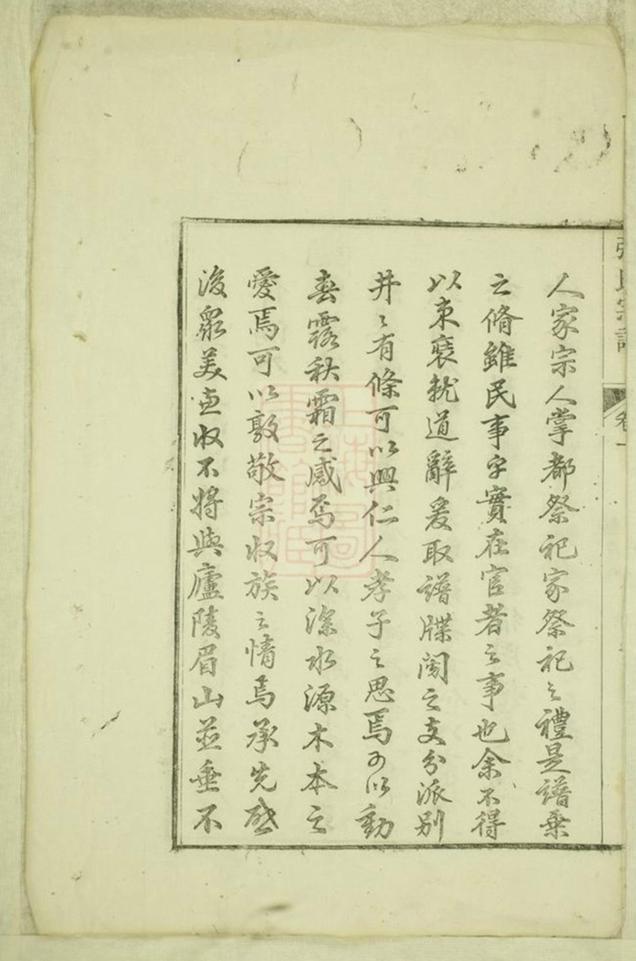 張氏宗譜
卷一
人家宗人掌都祭祀家祭祀之禮是譜乗
之脩雖民事乎實在官者之事也余不得
以束裝就道辭爰取譜牒閱之支分派别
井〻有條可以興仁人孝子之思焉可以動
春露秋霜之感焉可以深水源木本之
愛焉可以敦敬宗收族之情焉承先啟
後衆美盡收不將與廬陵眉山並垂不